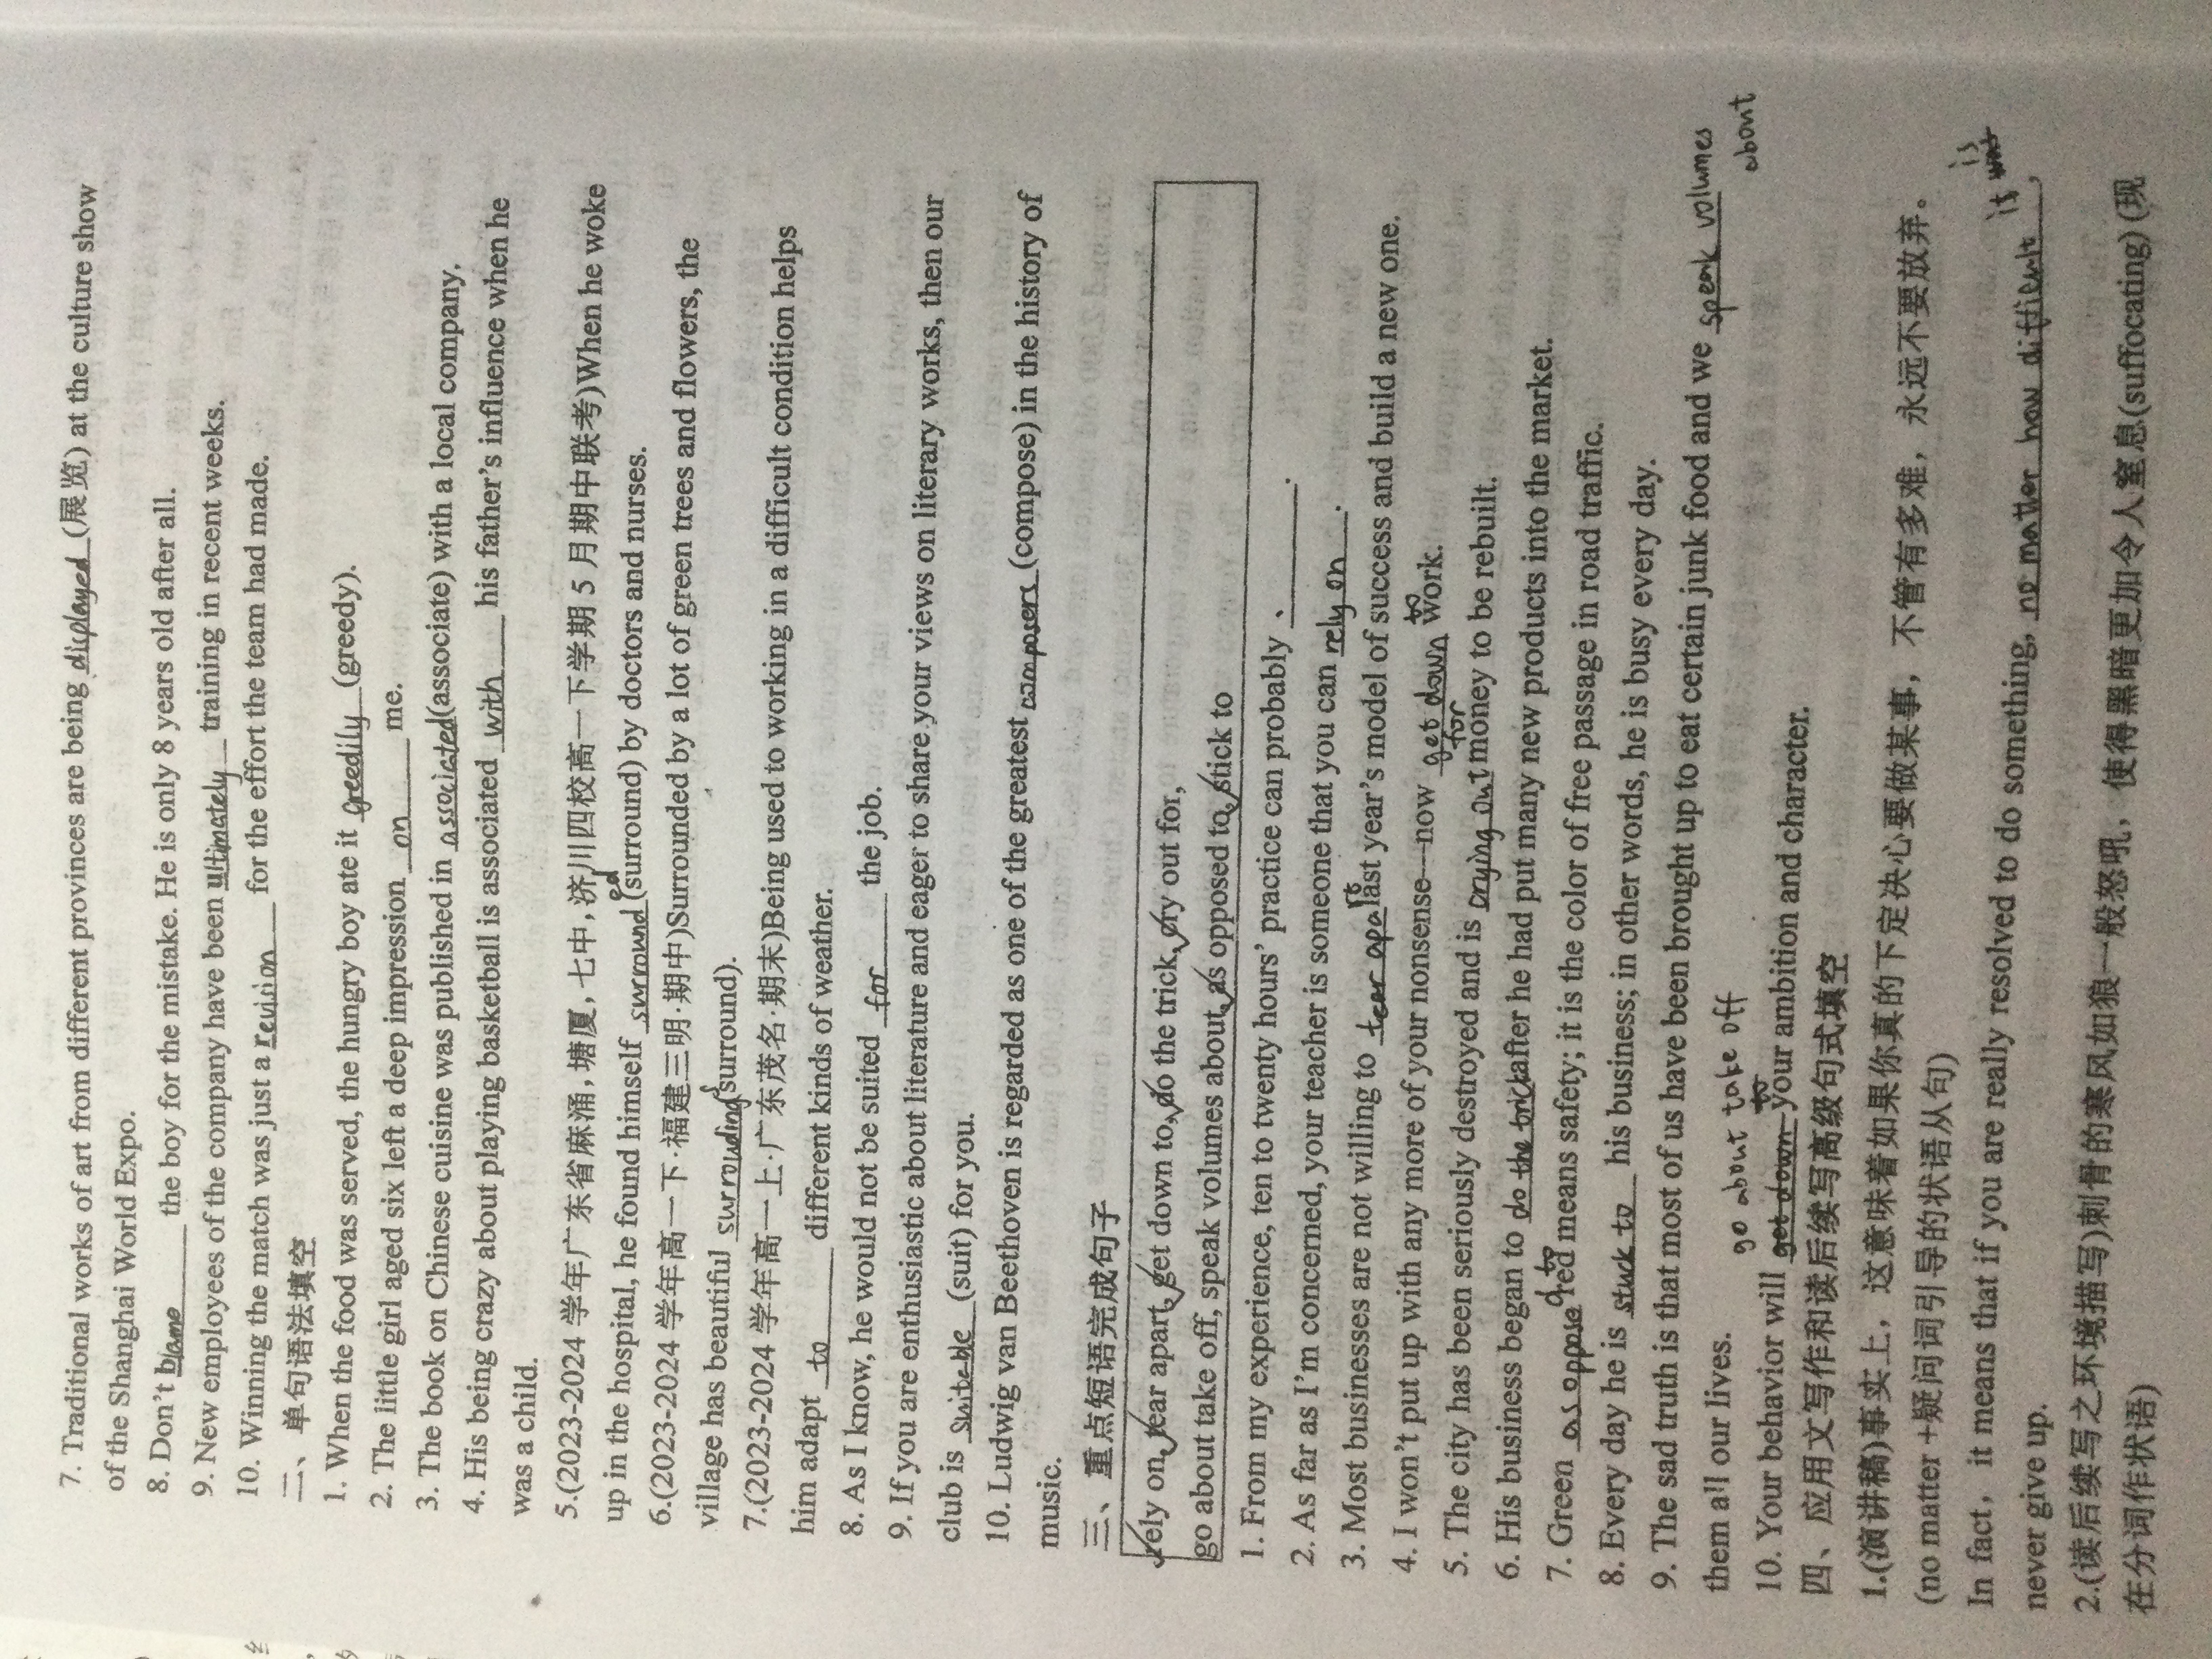 7. Traditional works of art from different provinces are being displayed (展览) at the culture show
of the Shanghai World Expo.
8. Don't blame the boy for the mistake. He is only 8 years old after all.
9. New employees of the company have been ultimately training in recent weeks.
10. Winning the match was just a revision for the effort the team had made.
二、单句语法填空
1. When the food was served, the hungry boy ate it greedily (greedy).
2. The little girl aged six left a deep impression on me.
3. The book on Chinese cuisine was published in associated (associate) with a local company.
4. His being crazy about playing basketball is associated with his father's influence when he
was a child.
5.(2023-2024 学年广东省麻涌,塘厦,七中,济川四校高一下学期 5 月期中联考)When he woke
up in the hospital, he found himself surrounded (surround) by doctors and nurses.
6.(2023-2024 学年高一下·福建三明·期中)Surrounded by a lot of green trees and flowers, the
village has beautiful surroudings (surround).
7.(2023-2024 学年高一上·广东茂名·期末)Being used to working in a difficult condition helps
him adapt to different kinds of weather.
8. As I know, he would not be suited for the job.
9. If you are enthusiastic about literature and eager to share your views on literary works, then our
club is suitable (suit) for you.
10. Ludwig van Beethoven is regarded as one of the greatest composers (compose) in the history of
music.
三、重点短语完成句子
rely on, tear apart, get down to, do the trick, cry out for,
go about take off, speak volumes about, as opposed to, stick to
1. From my experience, ten to twenty hours' practice can probably ______.
2. As far as I'm concerned, your teacher is someone that you can rely on.
3. Most businesses are not willing to tear apart last year's model of success and build a new one.
4. I won't put up with any more of your nonsense---now get down to work.
5. The city has been seriously destroyed and is crying out for money to be rebuilt.
6. His business began to do the trick after he had put many new products into the market.
7. Green as opposed to red means safety; it is the color of free passage in road traffic.
8. Every day he is stuck to his business; in other words, he is busy every day.
9. The sad truth is that most of us have been brought up to eat certain junk food and we speak volumes about
them all our lives.
go about take off
10. Your behavior will get down to your ambition and character.
四、应用文写作和读后续写高级句式填空
1.(演讲稿)事实上，这意味着如果你真的下定决心要做某事，不管有多难，永远不要放弃。
(no matter +疑问词引导的状语从句)
In fact，it means that if you are really resolved to do something, no matter how difficult it was is,
never give up.
2.(读后续写之环境描写)刺骨的寒风如狼一般怒吼，使得黑暗更加令人窒息(suffocating) (现
在分词作状语)